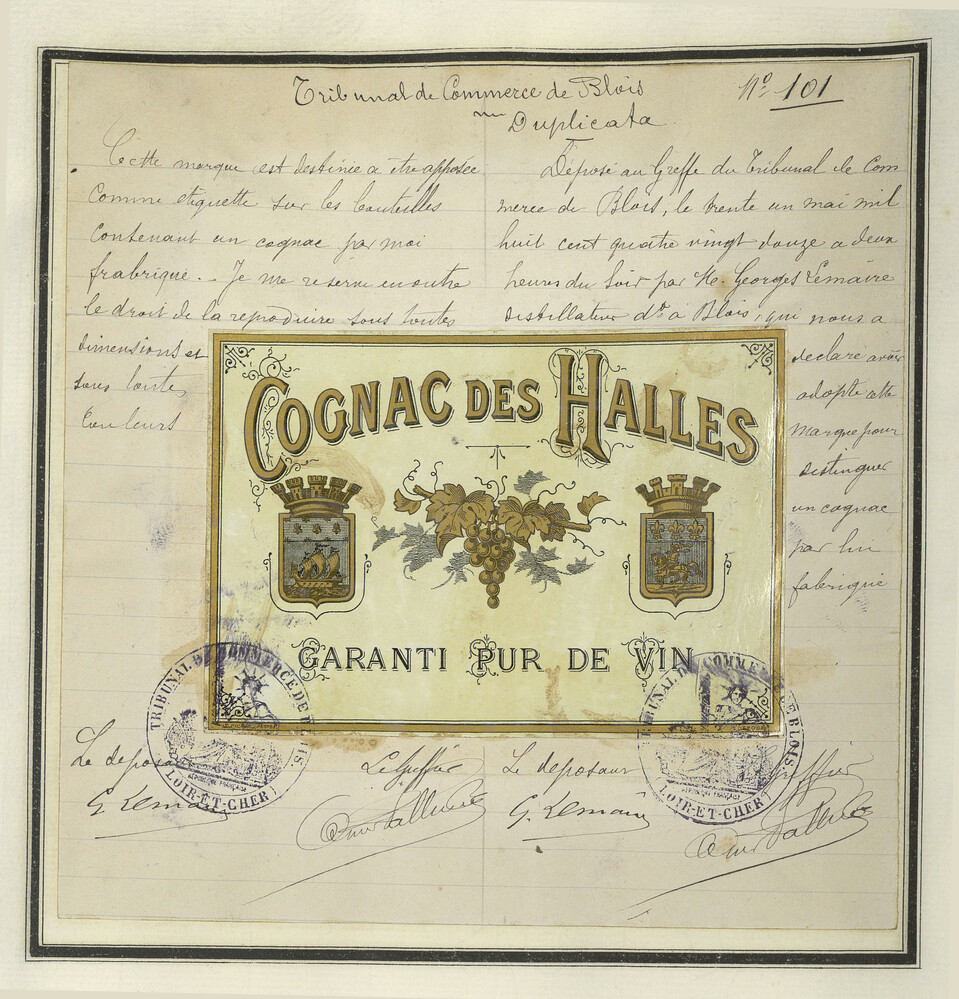 Tribunal de Commerce de Blois
Nº 101
Duplicata
Cette marque est destinée a être apposée
Comme etiquette sur les bouteilles
Contenant un cognac par moi
frabriqué. Je me reserve en outre
le droit de la reproduire sous toutes
dimensions et
sous toutes
Couleurs
Déposé au Greffe du Tribunal de Com
merce de Blois, le trente un mai mil
huit cent quatre vingt douze a deux
heures du soir par Mr. Georges Lemaire
distillateur dt a Blois, qui nous a
declaré avoir
adopté cette
marque pour
distinguer
un cognac
par lui
fabriqué
COGNAC DES HALLES
GARANTI PUR DE VIN
TRIBUNAL DE COMMERCE DE BLOIS
REPUBLIQUE FRANÇAISE
(LOIR-ET-CHER)
TRIBUNAL DE COMMERCE DE BLOIS
REPUBLIQUE FRANÇAISE
(LOIR-ET-CHER)
Le deposant
G. Lemaire
Le Greffier
Le deposant
G. Lemaire
Le Greffier